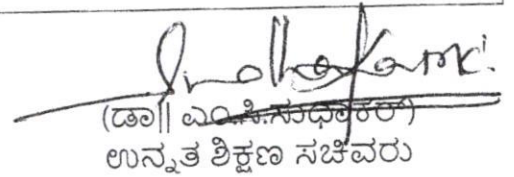 (ಡಾ|| ಎಂ.ಸಿ.ಸುಧಾಕರ್)
ಉನ್ನತ ಶಿಕ್ಷಣ ಸಚಿವರು